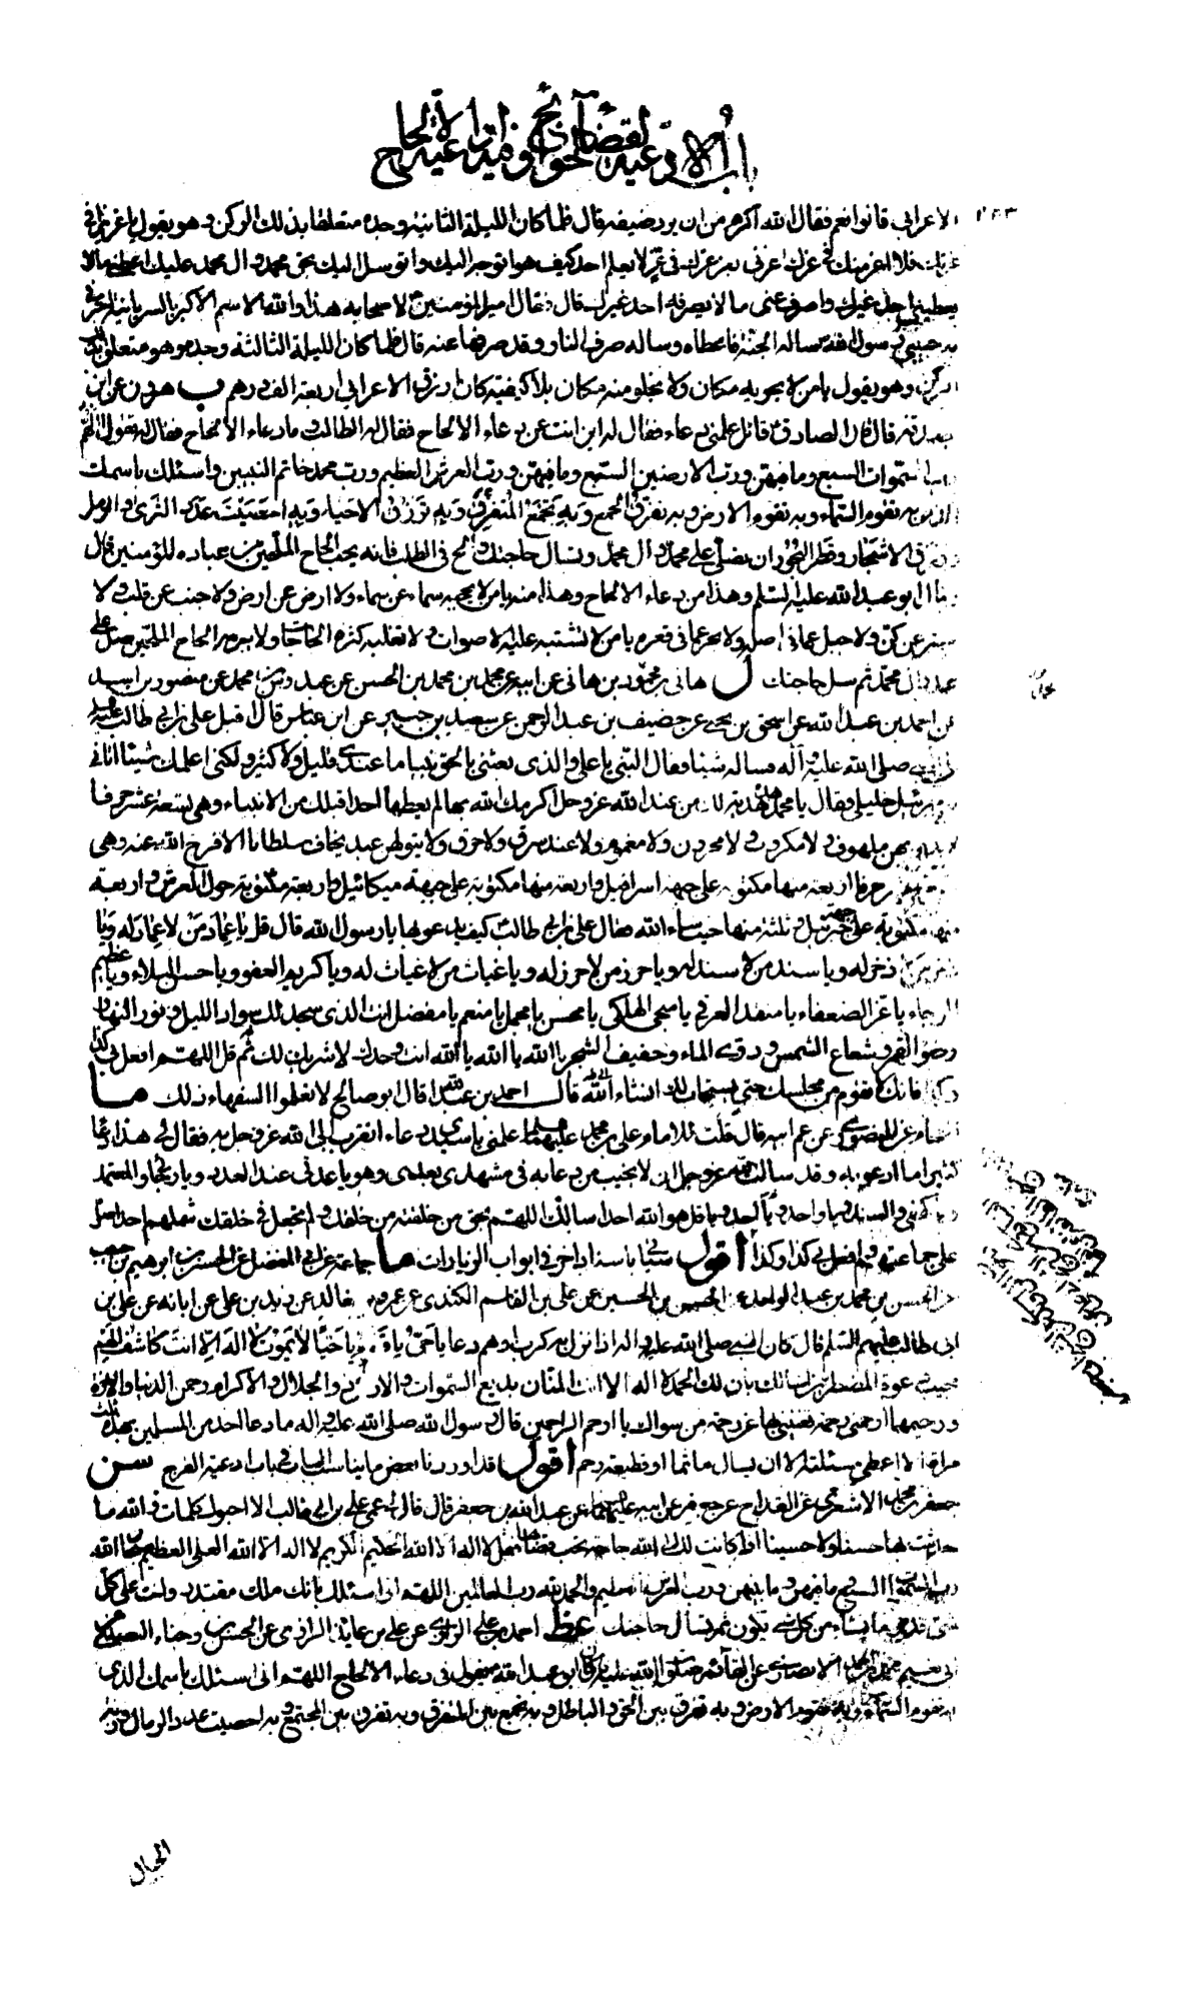 باب الادعية لقضاء الحوائج وفيه ادعية الالحاح
الاعرابي قالوا نعم فقال الله اكرم من ان يرد ضيفه قال فلما كان الليلة الثانية وجده متعلقا بذلك الركن وهو يقول يا عزيزا في
عزك فلا اعز منك في عزك اعزني بعز عزك في عز لا يعلم احد كيف هو اتوجه اليك واتوسل اليك بحق محمد وال محمد عليك اعطني ما لا
يعطيني احد غيرك واصرف عني ما لا يصرفه احد غيرك قال فقال امير المؤمنين لاصحابه هذا والله الاسم الاكبر بالسريانية اخبرني
به حبيبي رسول الله ساله الجنة فاعطاه وساله صرف النار وقد صرفها عنه قال فلما كان الليلة الثالثة وجده وهو متعلق بذلك
الركن وهو يقول يا من لا يحويه مكان ولا يخلو منه مكان بلا كيفية كان ارزق الاعرابي اربعة الف درهم ب هرون عن ابن
صدقة قال قال الصادق قائل علمني دعاء فقال له اين انت عن دعاء الالحاح فقال له الطالب وما دعاء الالحاح فقال له تقول اللهم
رب السموات السبع وما فيهن ورب الارضين السبع وما فيهن ورب العرش العظيم ورب محمد خاتم النبيين واسئلك باسمك
الذي به تقوم السماء وبه تقوم الارض وبه تفرق الجمع وبه تجمع المتفرق وبه ترزق الاحياء وبه احصيت عدد الثرى والرمل
وورق الاشجار وقطر البحور ان تصلي على محمد وال محمد وتسال حاجتك والح في الطلب فانه يحب الحاح الملحين من عباده المؤمنين قال
وقال ابو عبد الله عليه السلم وهذا من دعاء الالحاح وهذا منه يا من لا يحجبه سماء عن سماء ولا ارض عن ارض ولا جنب عن قلب ولا
ستر عن كن ولا جبل عما في اصله ولا بحر عما في قعره يا من لا تشتبه عليه الاصوات ولا تغلبه كثرة الحاجات ولا يبرمه الحاح الملحين صل على
محمد وال محمد ثم سل حاجتك ل هاني بن محمود بن هاني عن ابيه عن محمد بن محمد بن الحسن عن محمد عن منصور بن اسد
عن احمد بن عبد الله عن اسحق بن يحيى عن خصيف بن عبد الرحمن عن سعيد بن جبير عن ابن عباس قال اقبل علي بن ابي طالب عليه
الى النبي صلى الله عليه وآله فساله شيئا فقال النبي يا علي والذي بعثني بالحق نبيا ما عندي قليل ولا كثير ولكني اعلمك شيئا اتاني
به جبرئيل خليلي فقال يا محمد هذه هدية لك من عند الله عز وجل اكرمك الله بها لم يعطها احدا قبلك من الانبياء وهي تسعة عشر حرفا
لا يدعو بهن ملهوف ولا مكروب ولا محزون ولا مغموم ولا عند سرق ولا حرق ولا يقولهن عبد يخاف سلطانا الا فرج الله عنه وهي
تسعة عشر حرفا اربعة منها مكتوبة على جبهة اسرافيل واربعة منها مكتوبة على جبهة ميكائيل واربعة مكتوبة حول العرش واربعة
منها مكتوبة على جبهة جبرئيل وثلثة منها حيث شاء الله فقال علي بن ابي طالب كيف يدعو بها يا رسول الله قال قل يا عماد من لا عماد له ويا
ذخر من لا ذخر له ويا سند من لا سند له ويا حرز من لا حرز له ويا غياث من لا غياث له ويا كريم العفو ويا حسن البلاء ويا عظيم
الرجاء يا عز الضعفاء يا منقذ الغرقى يا منجي الهلكى يا محسن يا مجمل يا منعم يا مفضل انت الذي سجد لك سواد الليل ونور النهار
وضوء القمر وشعاع الشمس ودوي الماء وحفيف الشجر يا الله يا الله يا الله انت وحدك لا شريك لك ثم قل اللهم افعل بي كذا
وكذا فانك لا تقوم من مجلسك حتى يستجاب لك انشاء الله قال احمد بن عبد الله قال ابو صالح لا تعلموا السفهاء ذلك ما
الفحام عن المنصوري عن عم ابيه قال قلت للامام علي بن محمد عليهما السلام علمني يا سيدي دعاء اتقرب الى الله عز وجل به فقال لي هذا دعاء
كثيرا ما ادعو به وقد سالت الله عز وجل ان لا يخيب من دعا به في مشهدي بعدي وهو يا عدتي عند العدد ويا رجائي والمعتمد
ويا كهفي والسند ويا واحد يا احد ويا قل هو الله احد اسالك اللهم بحق من خلقته من خلقك ولم تجعل في خلقك مثلهم احدا صل
على جماعتهم وافعل بي كذا وكذا اقول سياتي باسناد اخر في ابواب الزيارات ما جماعة عن ابي المفضل عن الحسن بن ابرهيم بن حبيب
عن الحسن بن محمد بن عبد الواحد عن الحسن بن الحسين عن علي بن القاسم الكندي عن عمرو بن خالد عن زيد بن علي عن ابائه عن علي بن
ابي طالب عليهم السلم قال كان النبي صلى الله عليه واله اذا نزل به كرب او هم دعا يا حي يا قيوم يا حيا لا يموت لا اله الا انت كاشف الهم
مجيب دعوة المضطرين اسالك بان لك الحمد لا اله الا انت المنان بديع السموات والارض ذو الجلال والاكرام رحمن الدنيا والاخرة
ورحيمهما ارحمني رحمة تغنيني بها عن رحمة من سواك يا ارحم الراحمين قال رسول الله صلى الله عليه واله ما دعا احد من المسلمين بهذه ثلث
مرات الا اعطي مسئلته الا ان يسال ماثما او قطيعة رحم اقول قد اوردنا بعض ما يناسب الباب في باب ادعية الفرج سن
جعفر بن محمد الاشعري عن القداح عن جعفر عن ابيه عليهما السلام عن عبد الله بن جعفر قال قال لي عمي علي بن ابي طالب الا احبوك كلمات والله ما
حدثت بها حسنا ولا حسينا اذا كانت لك الى الله حاجة تحب قضاءها فقل لا اله الا الله الحليم الكريم لا اله الا الله العلي العظيم سبحان الله
رب السموات السبع وما فيهن وما بينهن ورب العرش العظيم والحمد لله رب العالمين اللهم اني اسئلك بانك ملك مقتدر وانت على كل
شيء قدير ما تشاء من كل شيء تكون ثم تسال حاجتك
الى الله عليه كان ابو عبد الله يقول في دعاء الالحاح اللهم اني اسئلك باسمك الذي
به تقوم السماء وبه تقوم الارض وبه تفرق بين الحق والباطل وبه تجمع بين المتفرق وبه تفرق بين المجتمع وبه احصيت عدد الرمال وزنة
الجبال